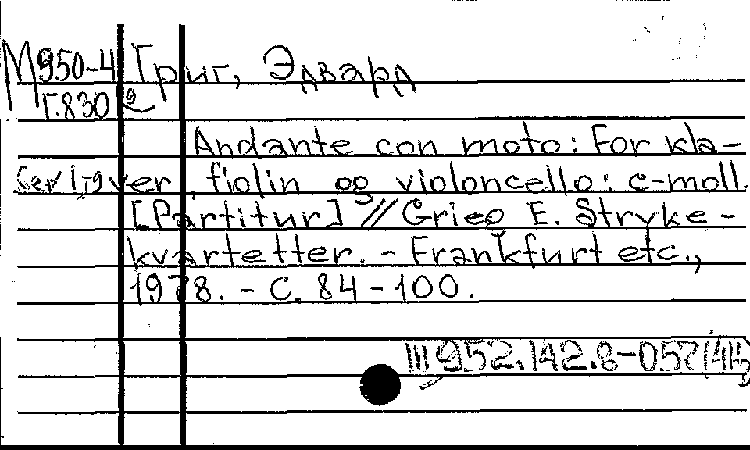 М950-4 Григ, Эдвард
Г.830
Andante con moto: For kla-
ver, fiolin og violoncello: c-moll.
[Partitur] // Grieg E. Stryke-
kvartetter. - Frankfurt etc.,
1978. - С. 84-100.
952.142.8-057(415)